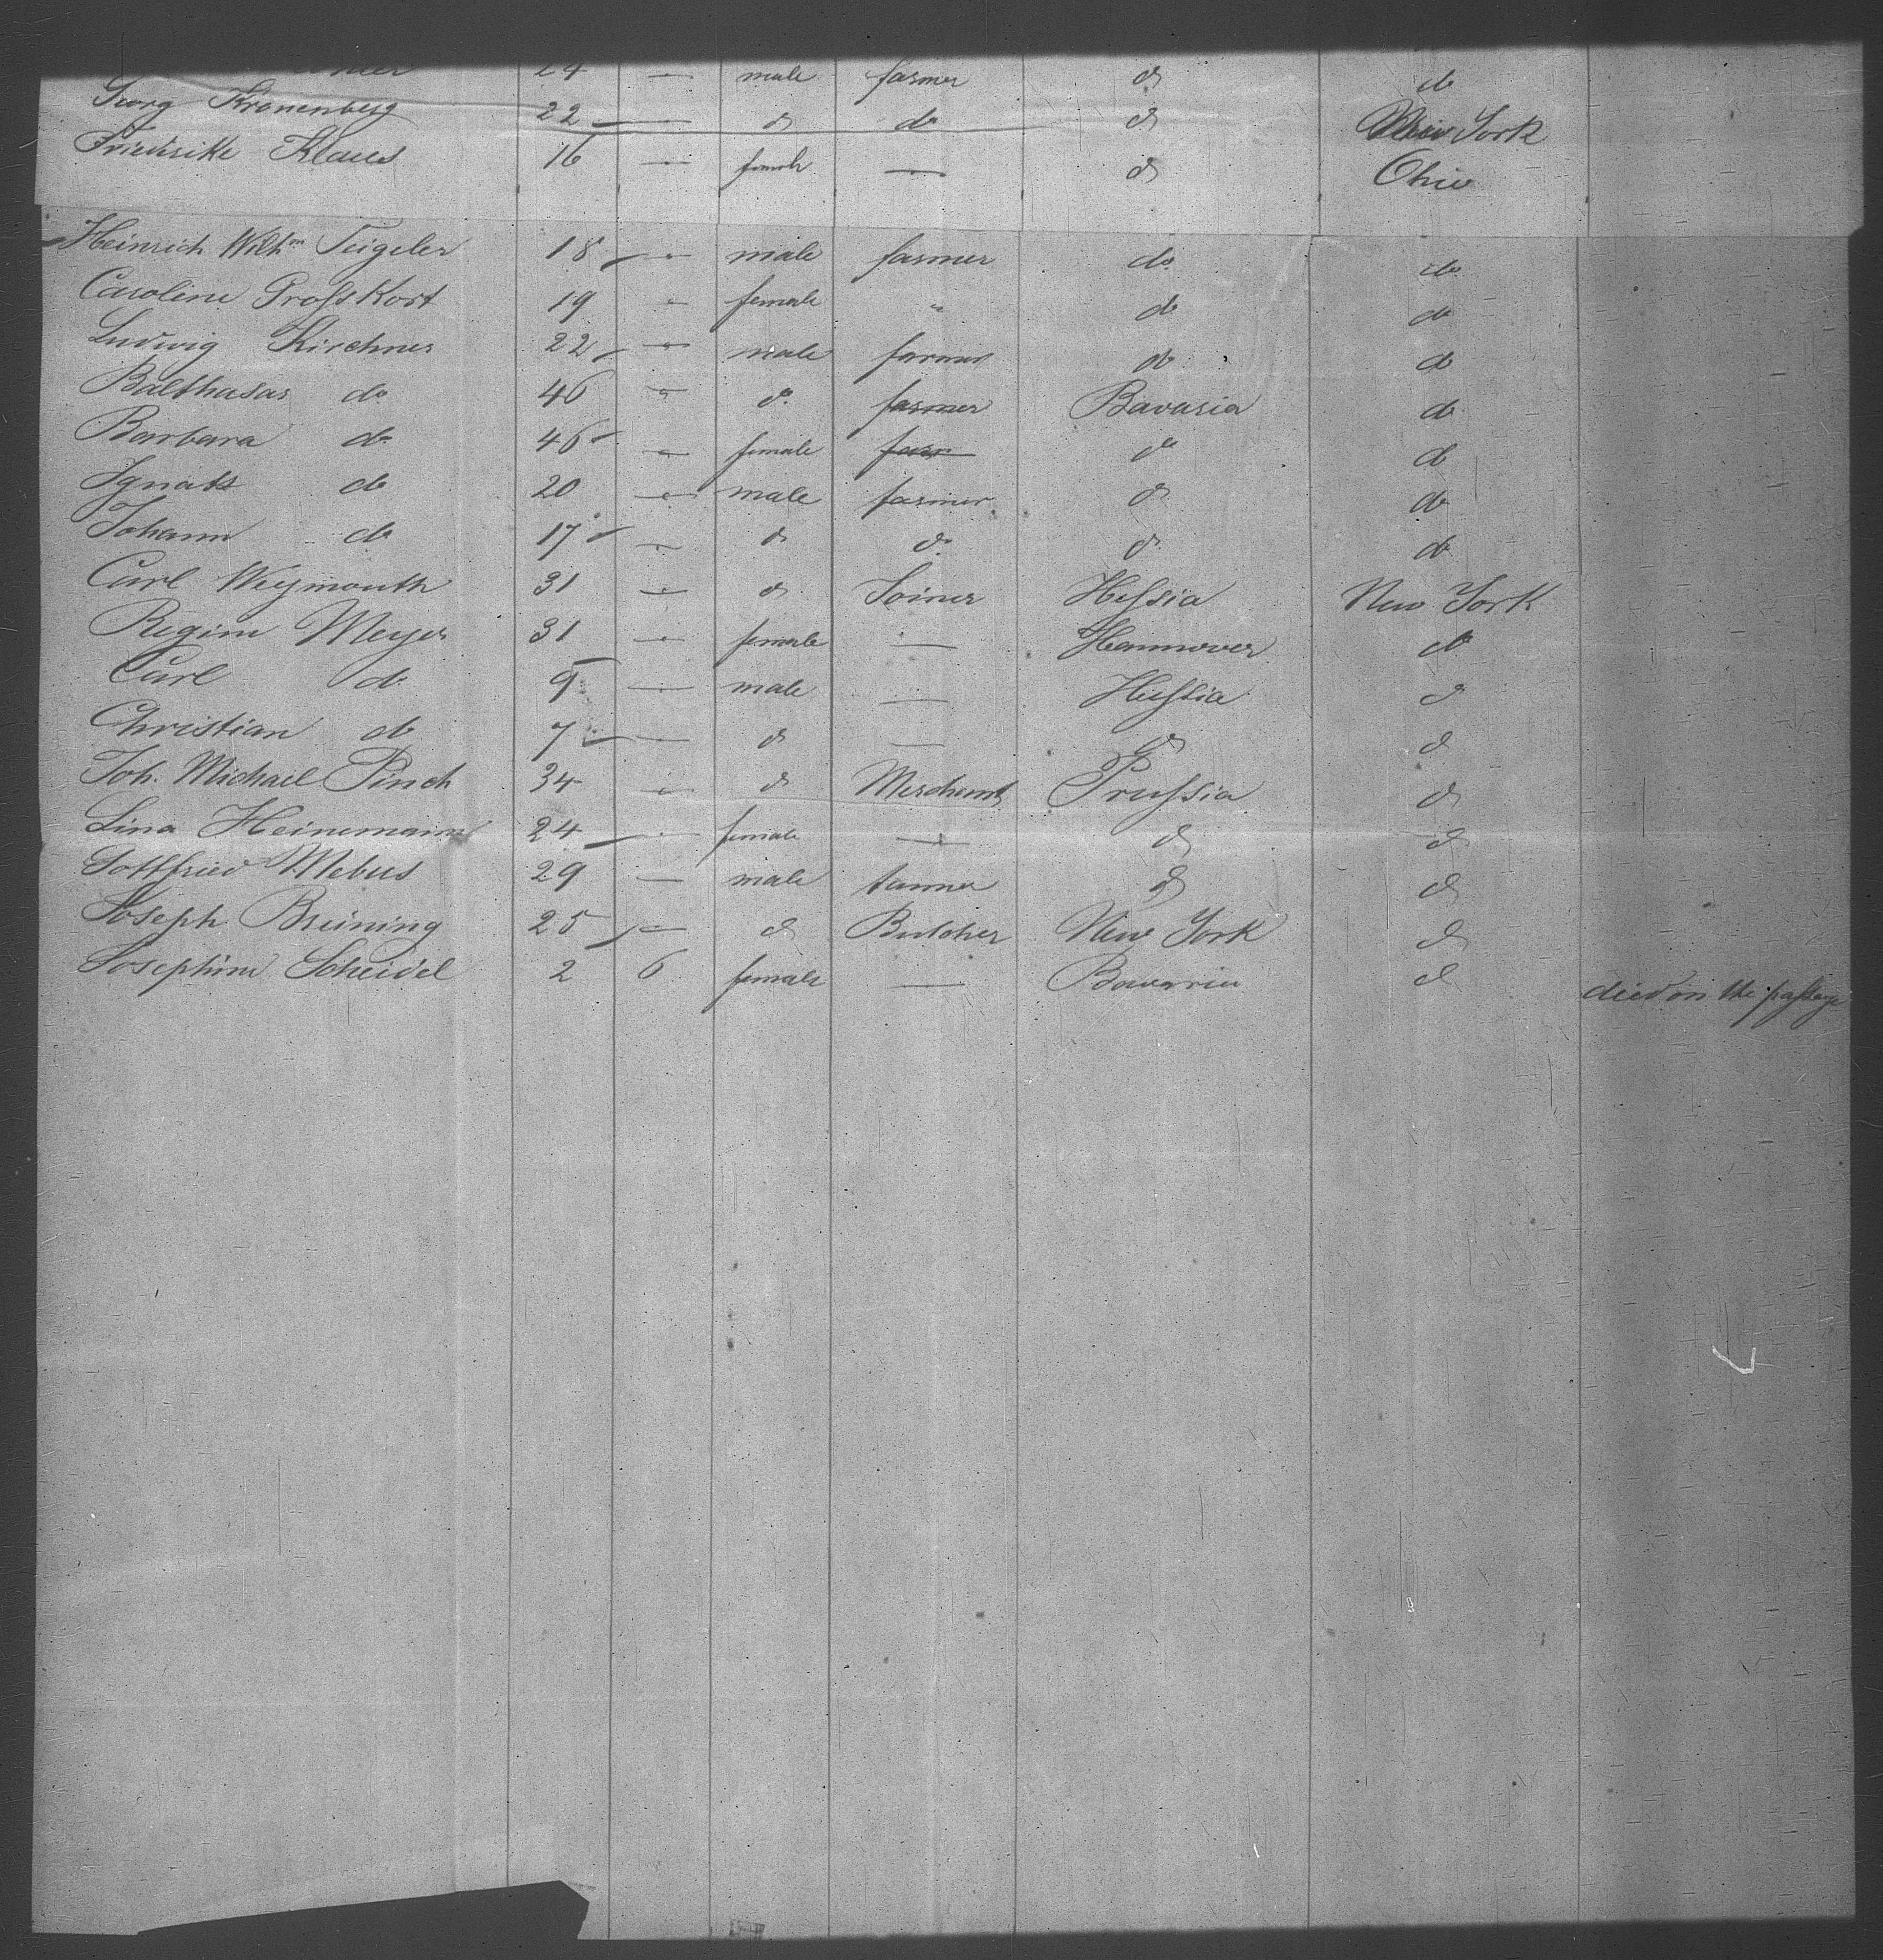 24 — male farmer do do
Georg Kronenberg 22 — do do do New York
Friedrike Klaus 16 — female — do Ohio
Heinrich Wilhm Teigeler 18 — male farmer do do
Caroline Grosskort 19 " female " do do
Ludwig Kirchner 22 " male farmer do do
Balthasar do 46 " do farmer Bavaria do
Barbara do 46 " female farr do do
Ignatz do 20 " male farmer do do
Johann do 17 " do do do do
Carl Weymouth 31 — do Joiner Hessia New York
Regine Meyer 31 — female — Hannover do
Carl do 9 — male — Hessia do
Christian do 7 — do — do do
Joh. Michael Pinch 34 — do Merchant Prussia do
Lina Heinemann 24 — female — do do
Gottfried Mebus 29 — male tanner do do
Joseph Breining 25 — do Butcher New York do
Josephine Scheidel 2 6 female — Bavaria do died on the passage